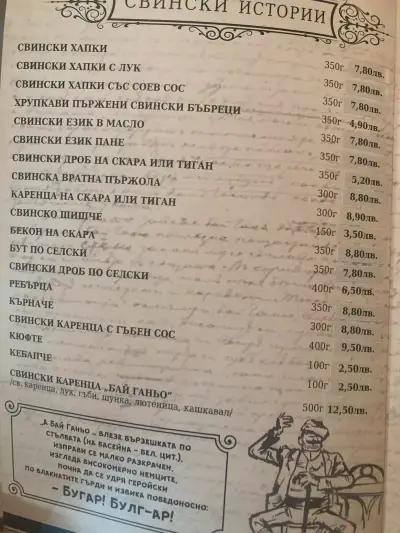 СВИНСКИ ИСТОРИИ
СВИНСКИ ХАПКИ 350г 7,80лв.
СВИНСКИ ХАПКИ С ЛУК 350г 7,80лв.
СВИНСКИ ХАПКИ СЪС СОЕВ СОС 350г 7,80лв.
ХРУПКАВИ ПЪРЖЕНИ СВИНСКИ БЪБРЕЦИ 350г 4,90лв.
СВИНСКИ ЕЗИК В МАСЛО 350г 7,80лв.
СВИНСКИ ЕЗИК ПАНЕ 350г 7,80лв.
СВИНСКИ ДРОБ НА СКАРА ИЛИ ТИГАН 350г 5,20лв.
СВИНСКА ВРАТНА ПЪРЖОЛА 300г 8,80лв.
КАРЕНЦА НА СКАРА ИЛИ ТИГАН 300г 8,90лв.
СВИНСКО ШИШЧЕ 150г 3,50лв.
БЕКОН НА СКАРА 350г 8,80лв.
БУТ ПО СЕЛСКИ 350г 7,80лв.
СВИНСКИ ДРОБ ПО СЕЛСКИ 400г 6,50лв.
РЕБЪРЦА 350г 8,80лв.
КЪРНАЧЕ 300г 8,80лв.
СВИНСКИ КАРЕНЦА С ГЪБЕН СОС 400г 9,50лв.
КЮФТЕ 100г 2,50лв.
КЕБАПЧЕ 100г 2,50лв.
СВИНСКИ КАРЕНЦА „БАЙ ГАНЬО" 500г 12,50лв.
/св. каренца, лук, гъби, шунка, лютеница, кашкавал/
„А БАЙ ГАНЬО – ВЛЕЗЕ ВЪРЗЕШКАТА ПО
СТЪЛБАТА (НА БАСЕЙНА – ВЕЛ. ЦИТ.),
ИЗПРАВИ СЕ МАЛКО РАЗКРАЧЕН,
ИЗГЛЕДА ВИСОКОМЕРНО НЕМЦИТЕ,
ПОЧНА ДА СЕ УДРЯ ГЕРОЙСКИ
ПО ВЛАКНАТИТЕ ГЪРДИ И ИЗВИКА ПОБЕДОНОСНО:
– БУГАР! БУЛГ-АР!